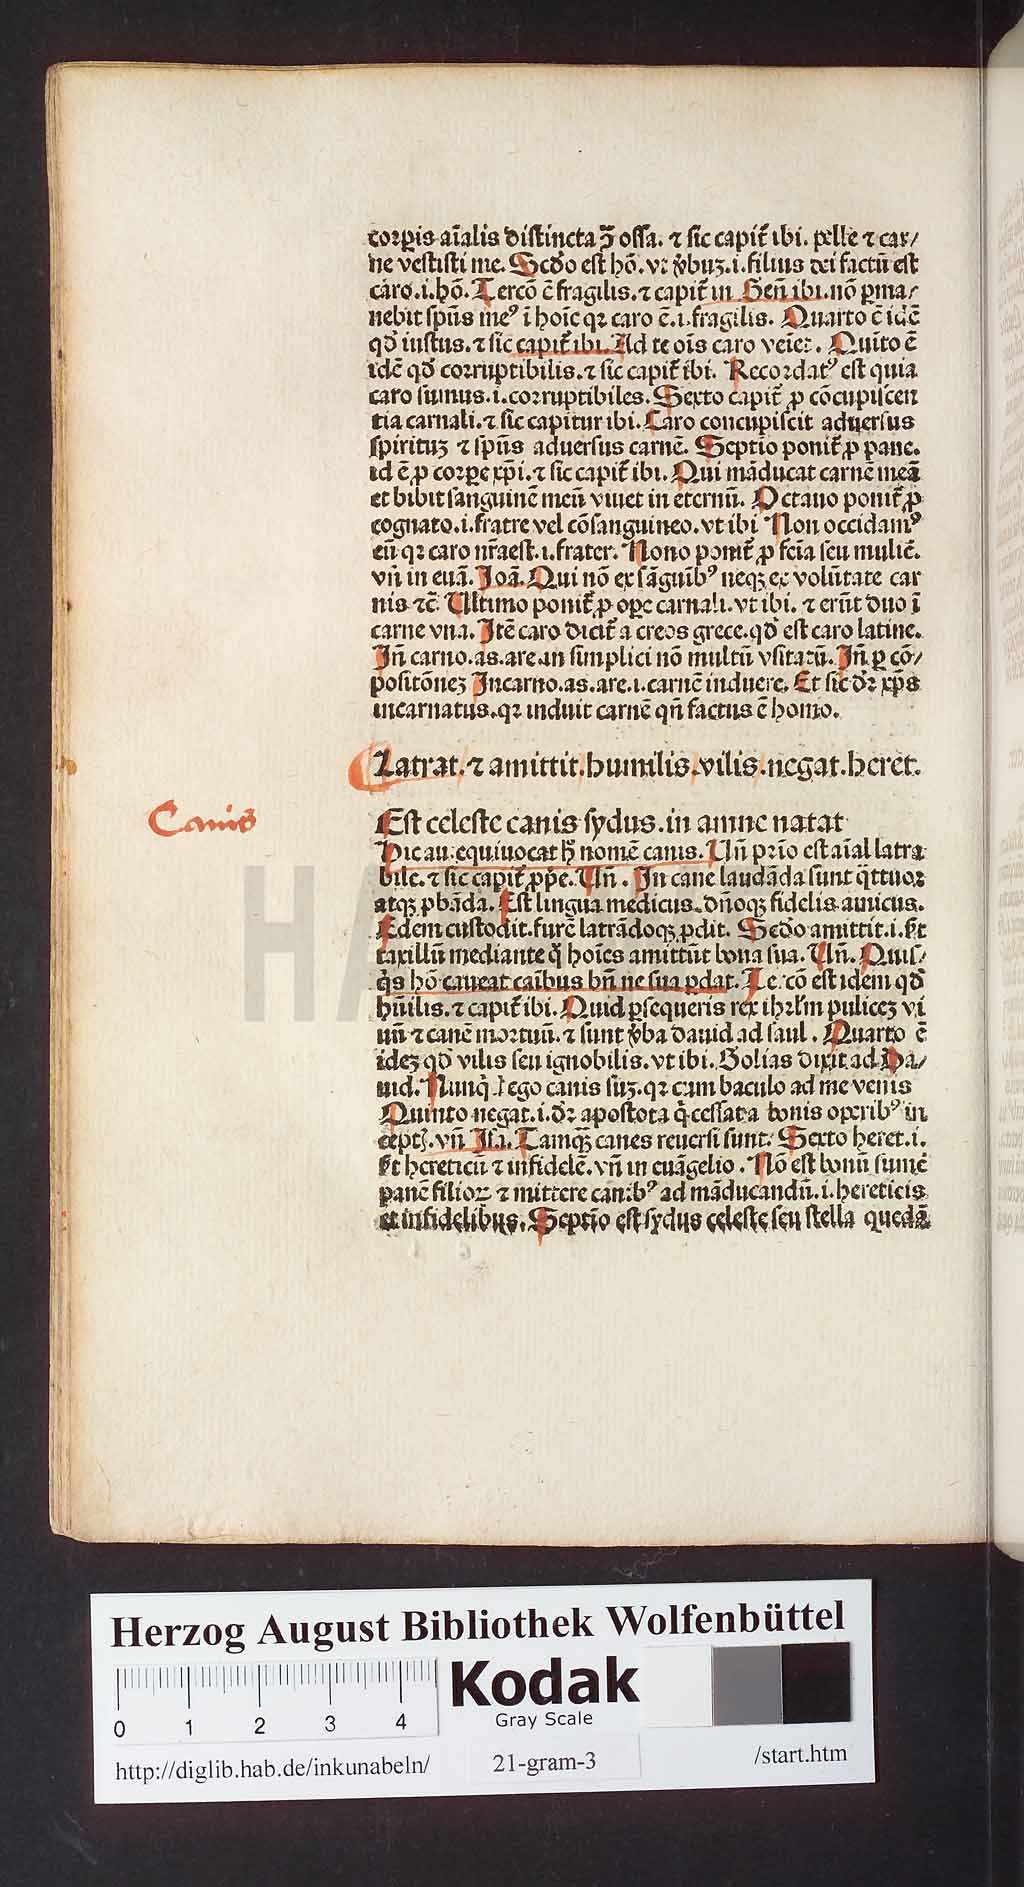 corꝑis aīalis distincta ꝯ̄ ossa. ⁊ sic capit᷑ ibi. pelle ⁊ car/
ne vestisti me. Scḋo est hō. vt v̓buꝫ .i. filius dei factū est
caro .i. hō. Tercō ē fragilis. ⁊ capit᷑ in Geñ ibi. nō ꝑma/
nebit spūs meꝰ ī hoīe qꝛ caro ē .i. fragilis. Quarto ē idē
qḋ iustus. ⁊ sic capit᷑ ibi. Ad te oīs caro veiet. Quīto ē
idē qḋ corruptibilis. ⁊ sic capit᷑ ibi. Recordatꝰ est quia
caro sumus .i. corruptibiles. Sexto capit᷑ ꝓ cōcupiscen
tia carnali. ⁊ sic capitur ibi. Caro concupiscit aduersus
spirituꝫ ⁊ spūs aduersus carnē. Septīo ponit᷑ ꝓ pane.
id ē ꝓ corꝑe xp̄i. ⁊ sic capit᷑ ibi. Qui māducat carnē meā
et bibit sanguinē meū viuet in eternū. Octauo ponit᷑ ꝓ
cognato .i. fratre vel cōsanguineo. vt ibi Non occidamꝰ
eū qꝛ caro nr̄a est .i. frater. Nono ponit᷑ ꝓ feīa seu muliē.
vñ in euā. Joā. Qui nō ex sāguībꝰ neqꝫ ex volūtate car
nis ⁊c̄. Ultimo ponit᷑ ꝓ oꝑe carnali. vt ibi. ⁊ erūt duo ī
carne vna. Itē caro dicit᷑ a creos grece. qḋ est caro latine.
Iñ carno. as. are. in simplici nō multū vsitatū. Iñ ꝑ cō/
positōneꝫ Incarno. as. are .i. carnē induere. Et sic dꝛ̄ xp̄s
incarnatus. qꝛ induit carnē qñ factus ē homo.
Latrat. ⁊ amittit. humilis. vilis. negat. heret.
Canis
Est celeste canis sydus. in amne natat
Hic au. equiuocat h̄ nomē canis. Uñ prīo est aīal latra
bile. ⁊ sic capit᷑ ꝓpe. Uñ. In cane laudāda sunt q̈ttuor
atqꝫ ꝓbāda. Est lingua medicus. dñoqꝫ fidelis amicus.
Edem custodit. furē latrādoqꝫ ꝓdit. Scḋo amittit .i. st
taxillū mediante q̊ hoīes amittūt bona sua. Uñ. Quis/
q̇s hō caueat caībus bñ ne sua ꝑdat. Tercō est idem qḋ
hūilis. ⁊ capit᷑ ibi. Quid ꝑsequeris rex ihrl̄m puliceꝫ vi
uū ⁊ canē mortuū. ⁊ sunt v̓ba dauid ad saul. Quarto ē
ideꝫ qḋ vilis seu ignobilis. vt ibi. Golias dixit ad Da/
uid. Nunq̇d ego canis suꝫ. qꝛ cum baculo ad me venis
Quinto negat .i. dꝛ̄ apostota q̇ cessat a bonis operibꝰ in
cept. vñ Isa. Tamqꝫ canes reuersi sunt. Sexto heret .i.
st hereticū ⁊ infidelē. vñ in euāgelio. Nō est bonū sumē
panē filioꝝ ⁊ mittere canibꝰ ad māducandū .i. hereticis
et infidelibus. Septīo est sydus celeste seu stella quedā
Herzog August Bibliothek Wolfenbüttel
0 1 2 3 4
Kodak
Gray Scale
http://diglib.hab.de/inkunabeln/ 21-gram-3 /start.htm